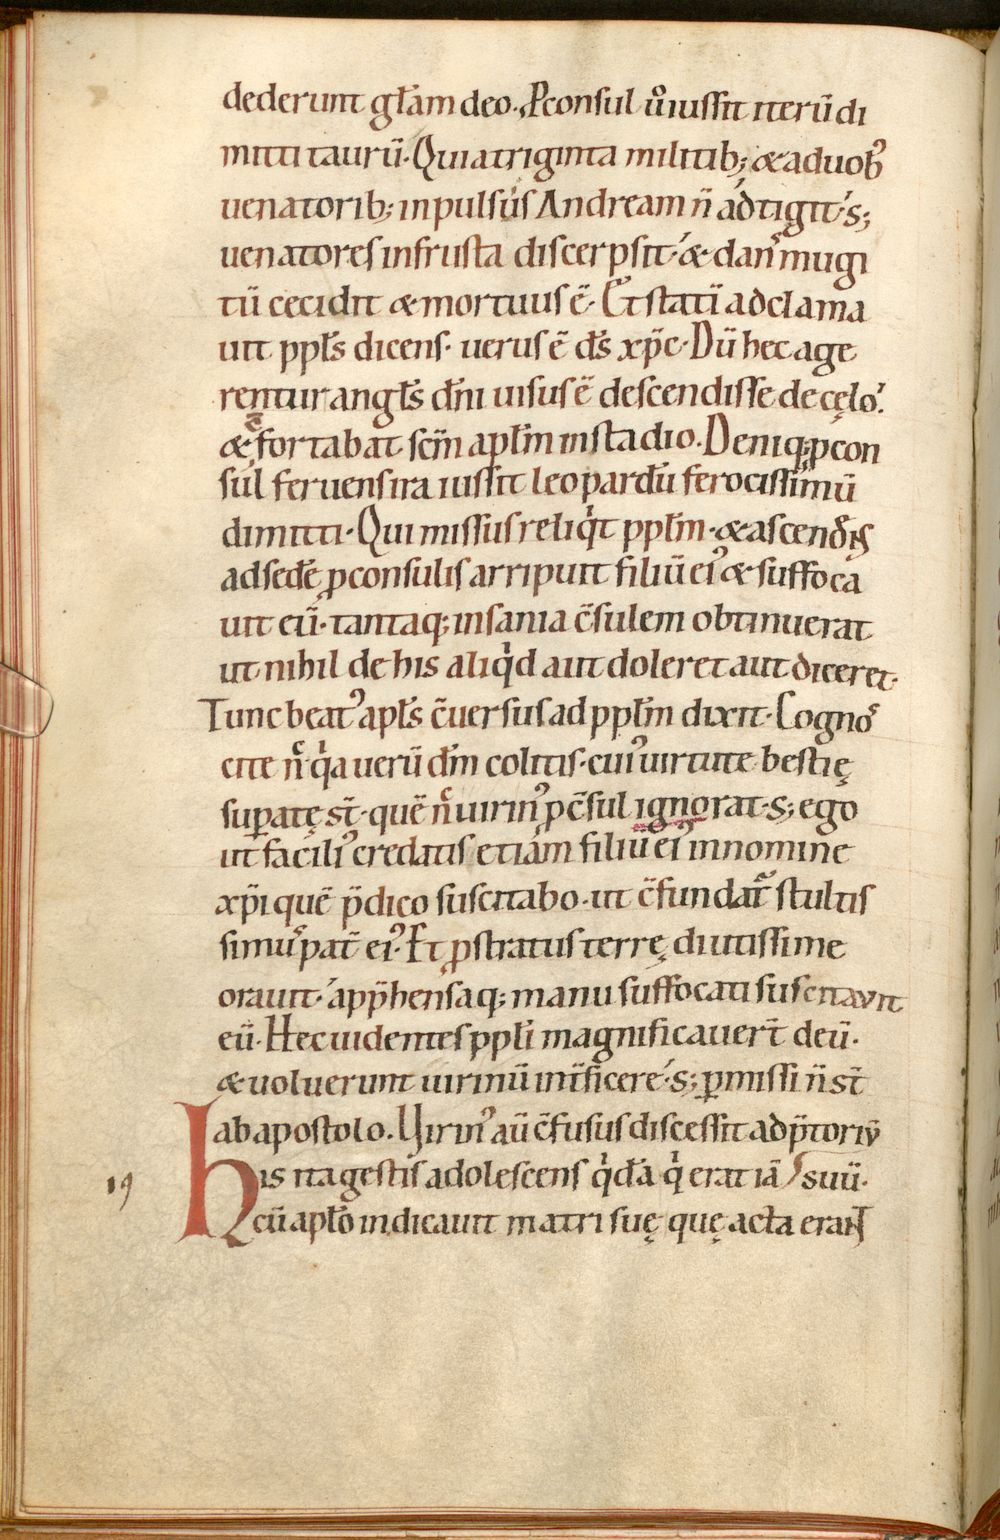 dederunt gl̄am deo. P̱consul ůiussit iterū di
mitti taurū. Qui a triginta militib; & a duobꝰ
venatorib; inpulsus Andream n̄ adtigit. s;
uenatores in frusta discerpsit. & danˢ mugi
tū cecidit & mortuus ē. Et statī adclama
uit ppl̄s dicens. uerus ē d̄s xp̄c. Dū hec age
rentur angl̄s dn̄i uisus ē descendisse de cęlo.
& c̄fortabat sc̄m apl̄m in stadio. Deniq; ꝓcon
sul feruens ira iussit leopardū ferocissimū
dimitti. Qui missus reliqͥt ppl̄m. & ascendens
ad sedē ꝓconsulis arripuit filiū eiꝰ & suffoca
uit eū. tantaq; insania c̄sulem obtinuerat
ut nihil de his aliqͥd aut doleret aut diceret.
Tunc beatꝰ apl̄s c̄uersus ad ppl̄m dixit. Cognoˢ
cite nc̄ qͥa uerū dm̄ colitis. cuiꝰ uirtute bestię
suꝑatę st̄. quē nc̄ uirinꝰ ꝓc̄sul ignorat. s; ego
ut faciliꝰ credatis etiam filiū eiꝰ in nomine
xp̄i quē p̄dico suscitabo. ut c̄fundat᷑ stultis
simuˢ pat̄ eiꝰ. Et ꝓstratus terrę diutissime
orauit. app̄hensaq; manu suffocati suscitavit
eū. Hec uidentes ppl̄i magnificauer̄t deū.
& uoluerunt uirinū int̄ficere. s; ꝑmissi n̄ st̄
ab apostolo. Uirinꝰ aū c̄fusus discessit ad p̄toriū
19 his ita gestis adolescens qͥdā qͥ erat iā suū.
cū apl̄o indicauit matri suę quę acta erant